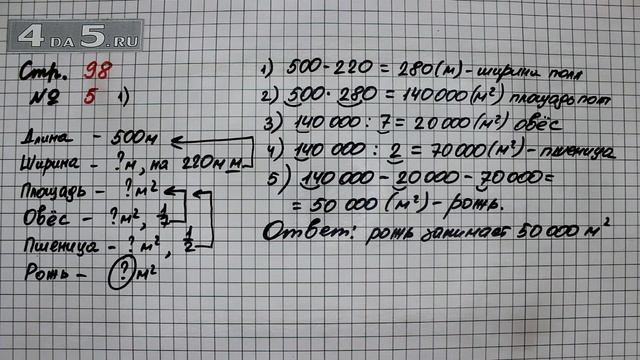 4DA5.RU
Стр. 98
№ 5 1)
Длина - 500м
Ширина - ?м, на 220м м
Площадь - ?м²
Овёс - ?м², 1/7
Пшеница - ?м², 1/2
Рожь - ?м²
1) 500-220 = 280(м)-ширина поля
2) 500·280 = 140000(м²) площадь пот
3) 140 000 : 7 = 20000(м²) овёс
4) 140 000 : 2 = 70000(м²)-пшеница
5) 140 000 - 20000 - 70000 =
= 50 000 (м²) - рожь.
Ответ: рожь занимает 50 000 м²